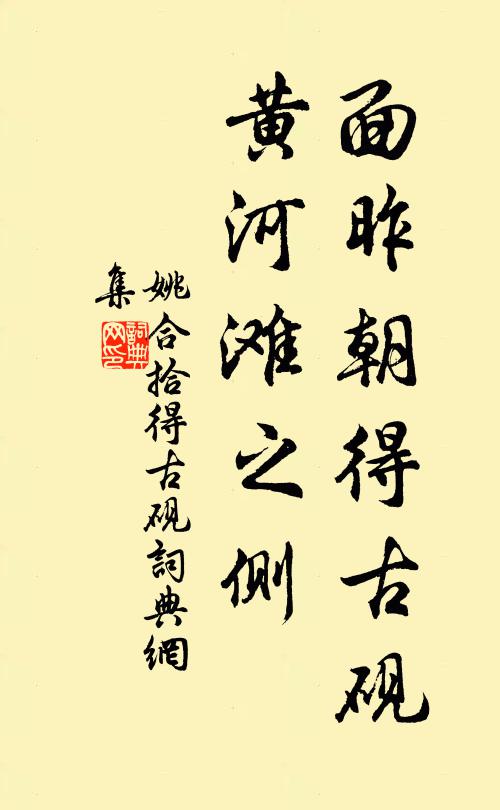 面昨朝得古砚
黄河滩之侧
姚合拾得古砚詞典網
集
詞典
网印